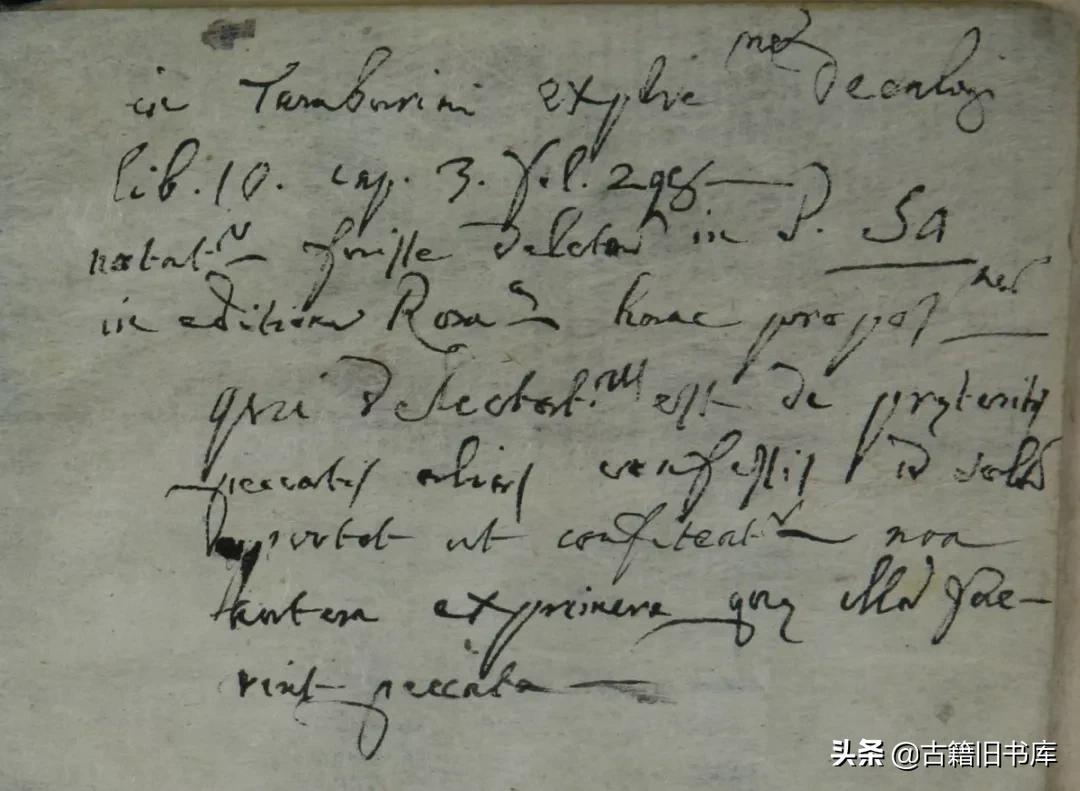 in Tamburini explic^ne Decalogi
lib. 10. cap. 3. f.l.
notat^r fuisse in P. Sa
in editione Roma^a hanc propos^nem
qui delectat^us est de pręteritis
peccatis alias confessis id solu
oportet ut confiteat^r non
autem exprimere quę illa fue-
rint peccata
头条 @古籍旧书库